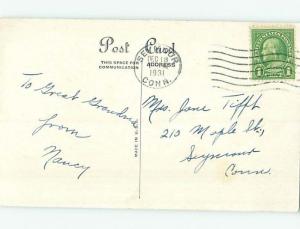 Post Card
THIS SPACE FOR
COMMUNICATION
ADDRESS
SEYMOUR
DEC 18
1931
CONN.
1
To Great Grandma
from
Nancy
Mrs. Jane Tifft
210 Maple St.,
Seymour
Conn.
MADE IN U.S.A.